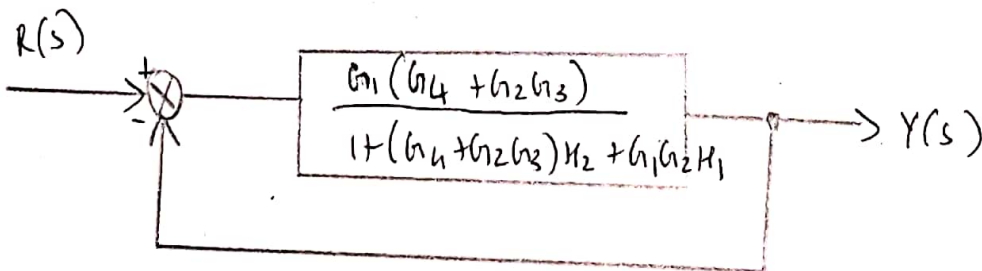 R(s)
+
-
G1(G4 + G2G3)
1+(G4+G2G3)H2 + G1G2H1
Y(s)